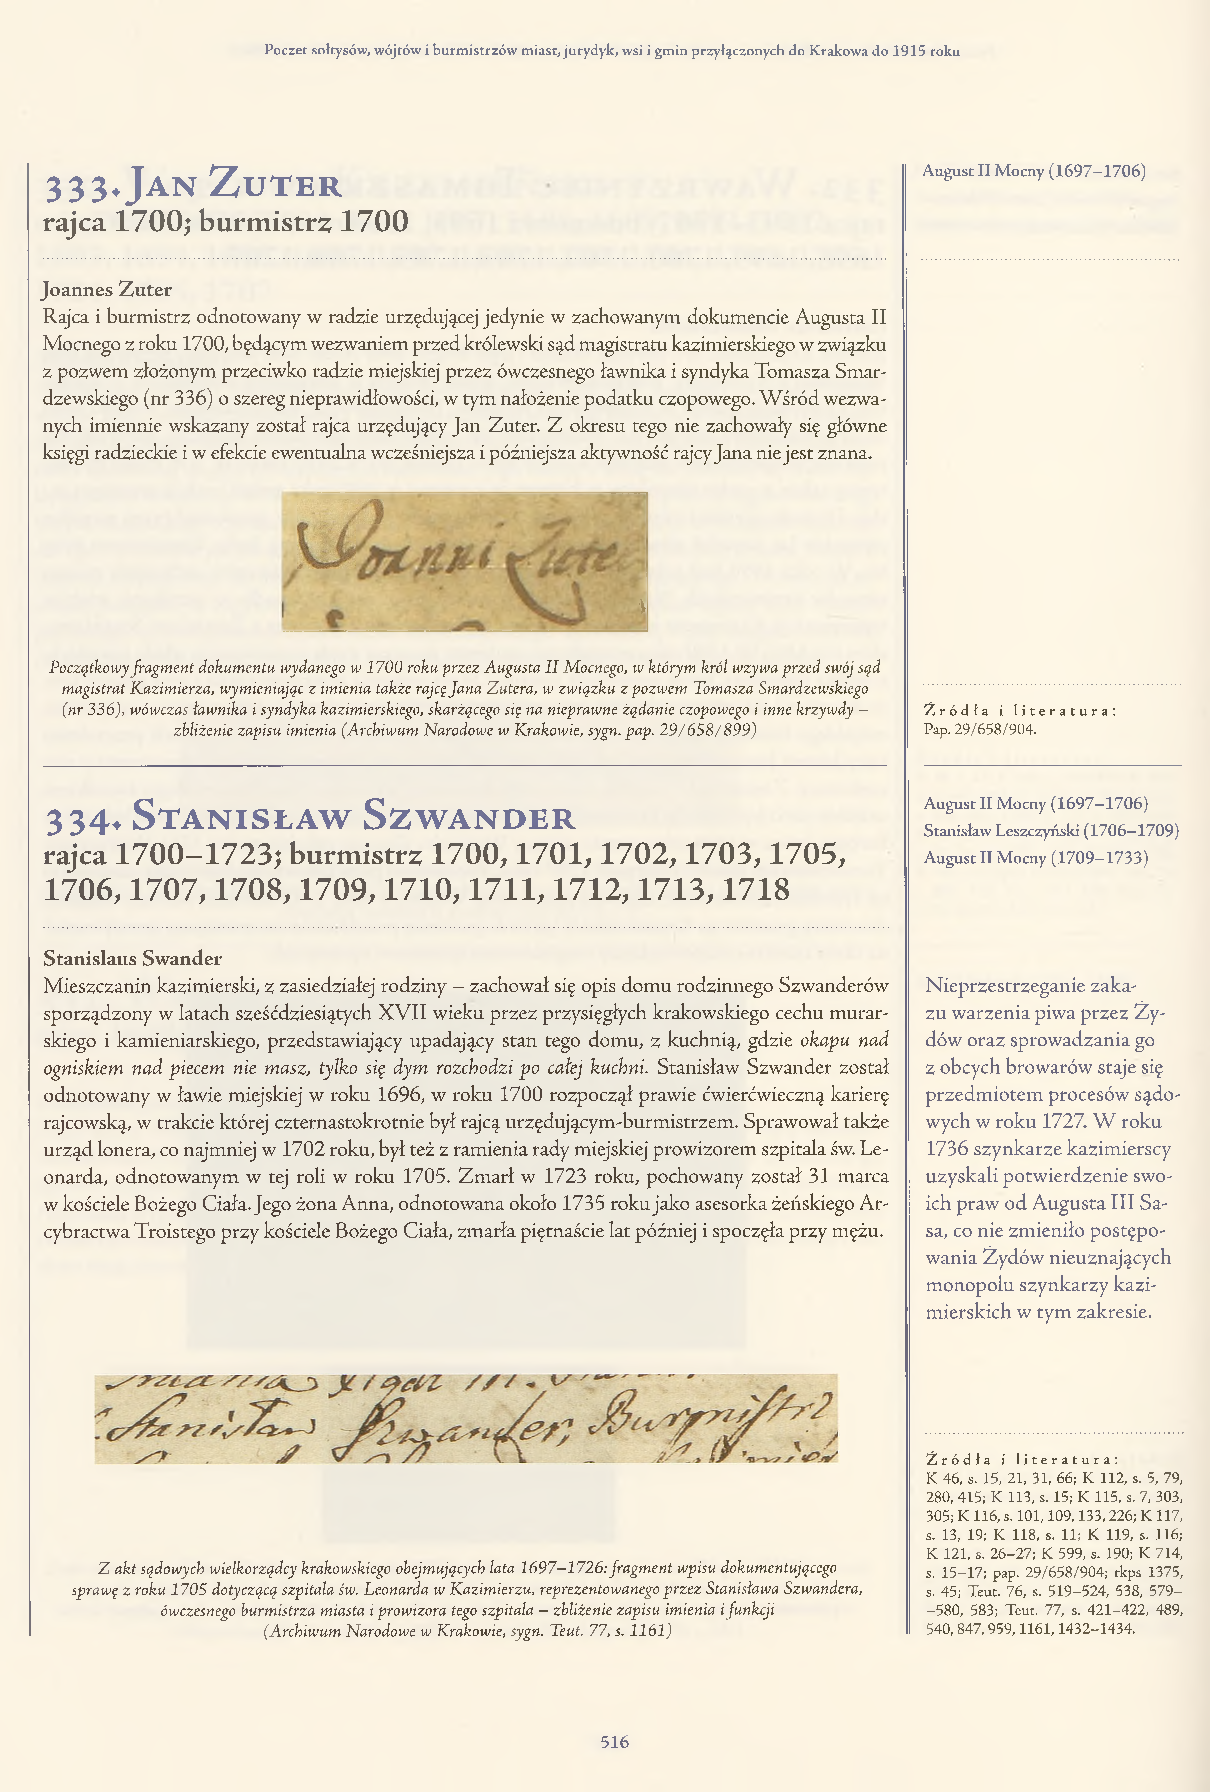 Poczet sołtysów, wójtów i burmistrzów miast, jurydyk, wsi i gmin przyłączonych do Krakowa do 1915 roku
333. Jan Zuter
rajca 1700; burmistrz 1700
Joannes Zuter
Rajca i burmistrz odnotowany w radzie urzędującej jedynie w zachowanym dokumencie Augusta II
Mocnego z roku 1700, będącym wezwaniem przed królewski sąd magistratu kazimierskiego w związku
z pozwem złożonym przeciwko radzie miejskiej przez ówczesnego ławnika i syndyka Tomasza Smar-
dzewskiego (nr 336) o szereg nieprawidłowości, w tym nałożenie podatku czopowego. Wśród wezwa-
nych imiennie wskazany został rajca urzędujący Jan Zuter. Z okresu tego nie zachowały się główne
księgi radzieckie i w efekcie ewentualna wcześniejsza i późniejsza aktywność rajcy Jana nie jest znana.
Joanni Zuter
Początkowy fragment dokumentu wydanego w 1700 roku przez Augusta II Mocnego, w którym król wzywa przed swój sąd
magistrat Kazimierza, wymieniając z imienia także rajcę Jana Zutera, w związku z pozwem Tomasza Smardzewskiego
(nr 336), wówczas ławnika i syndyka kazimierskiego, skarżącego się na nieprawne żądanie czopowego i inne krzywdy –
zbliżenie zapisu imienia (Archiwum Narodowe w Krakowie, sygn. pap. 29/658/899)
August II Mocny (1697–1706)
Źródła i literatura:
Pap. 29/658/904.
334. Stanisław Szwander
rajca 1700–1723; burmistrz 1700, 1701, 1702, 1703, 1705,
1706, 1707, 1708, 1709, 1710, 1711, 1712, 1713, 1718
Stanislaus Swander
Mieszczanin kazimierski, z zasiedziałej rodziny – zachował się opis domu rodzinnego Szwanderów
sporządzony w latach sześćdziesiątych XVII wieku przez przysięgłych krakowskiego cechu murar-
skiego i kamieniarskiego, przedstawiający upadający stan tego domu, z kuchnią, gdzie okapu nad
ogniskiem nad piecem nie masz, tylko się dym rozchodzi po całej kuchni. Stanisław Szwander został
odnotowany w ławie miejskiej w roku 1696, w roku 1700 rozpoczął prawie ćwierćwieczną karierę
rajcowską, w trakcie której czternastokrotnie był rajcą urzędującym-burmistrzem. Sprawował także
urząd lonera, co najmniej w 1702 roku, był też z ramienia rady miejskiej prowizorem szpitala św. Le-
onarda, odnotowanym w tej roli w roku 1705. Zmarł w 1723 roku, pochowany został 31 marca
w kościele Bożego Ciała. Jego żona Anna, odnotowana około 1735 roku jako asesorka żeńskiego Ar-
cybractwa Troistego przy kościele Bożego Ciała, zmarła piętnaście lat później i spoczęła przy mężu.
Stanisław Szwander, Burmistrz
Z akt sądowych wielkorządcy krakowskiego obejmujących lata 1697–1726: fragment wpisu dokumentującego
sprawę z roku 1705 dotyczącą szpitala św. Leonarda w Kazimierzu, reprezentowanego przez Stanisława Szwandera,
ówczesnego burmistrza miasta i prowizora tego szpitala – zbliżenie zapisu imienia i funkcji
(Archiwum Narodowe w Krakowie, sygn. Teut. 77, s. 1161)
August II Mocny (1697–1706)
Stanisław Leszczyński (1706–1709)
August II Mocny (1709–1733)
Nieprzestrzeganie zaka-
zu warzenia piwa przez Ży-
dów oraz sprowadzania go
z obcych browarów staje się
przedmiotem procesów sądo-
wych w roku 1727. W roku
1736 szynkarze kazimierscy
uzyskali potwierdzenie swo-
ich praw od Augusta III Sa-
sa, co nie zmieniło postępo-
wania Żydów nieuznających
monopolu szynkarzy kazi-
mierskich w tym zakresie.
Źródła i literatura:
K 46, s. 15, 21, 31, 66; K 112, s. 5, 79,
280, 415; K 113, s. 15; K 115, s. 7, 303,
305; K 116, s. 101, 109, 133, 226; K 117,
s. 13, 19; K 118, s. 11; K 119, s. 116;
K 121, s. 26–27; K 599, s. 190; K 714,
s. 15–17; pap. 29/658/904; rkps 1375,
s. 45; Teut. 76, s. 519–524, 538, 579–
–580, 583; Teut. 77, s. 421–422, 489,
540, 847, 959, 1161, 1432–1434.
516